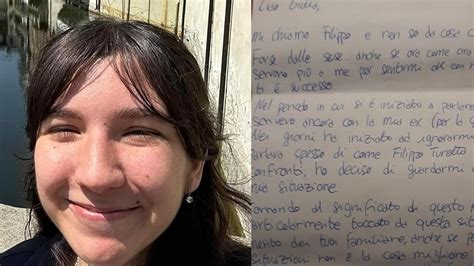 Cara Giulia,
mi chiamo Filippo e non so da cosa c
Forse dalle scuse, anche se ora come ora
servono più a me per sentirmi ok con
ti è successo.
Nel periodo in cui si è iniziato a parlar
scrivevo ancora con la mia ex (per la g
Nei giorni ha iniziato ad ignorarmi
parlava spesso di come Filippo Turetta
confronti, ho deciso di guardarmi
mia situazione
ornando al significato di questo
caldamente toccato da questa situ
mento dei tuoi familiare, anche se p
situazioni non è la cosa migliore